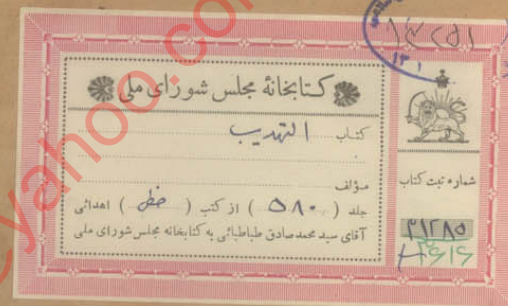 کتابخانهٔ مجلس شورای ملی
کتاب التهذیب
مؤلف
جلد ( ۵۸۰ ) از کتب ( خطی ) اهدائی
آقای سید محمدصادق طباطبائی به کتابخانه مجلس شورای ملی
شماره ثبت کتاب
۲۱۲۸۵
yahoo.co